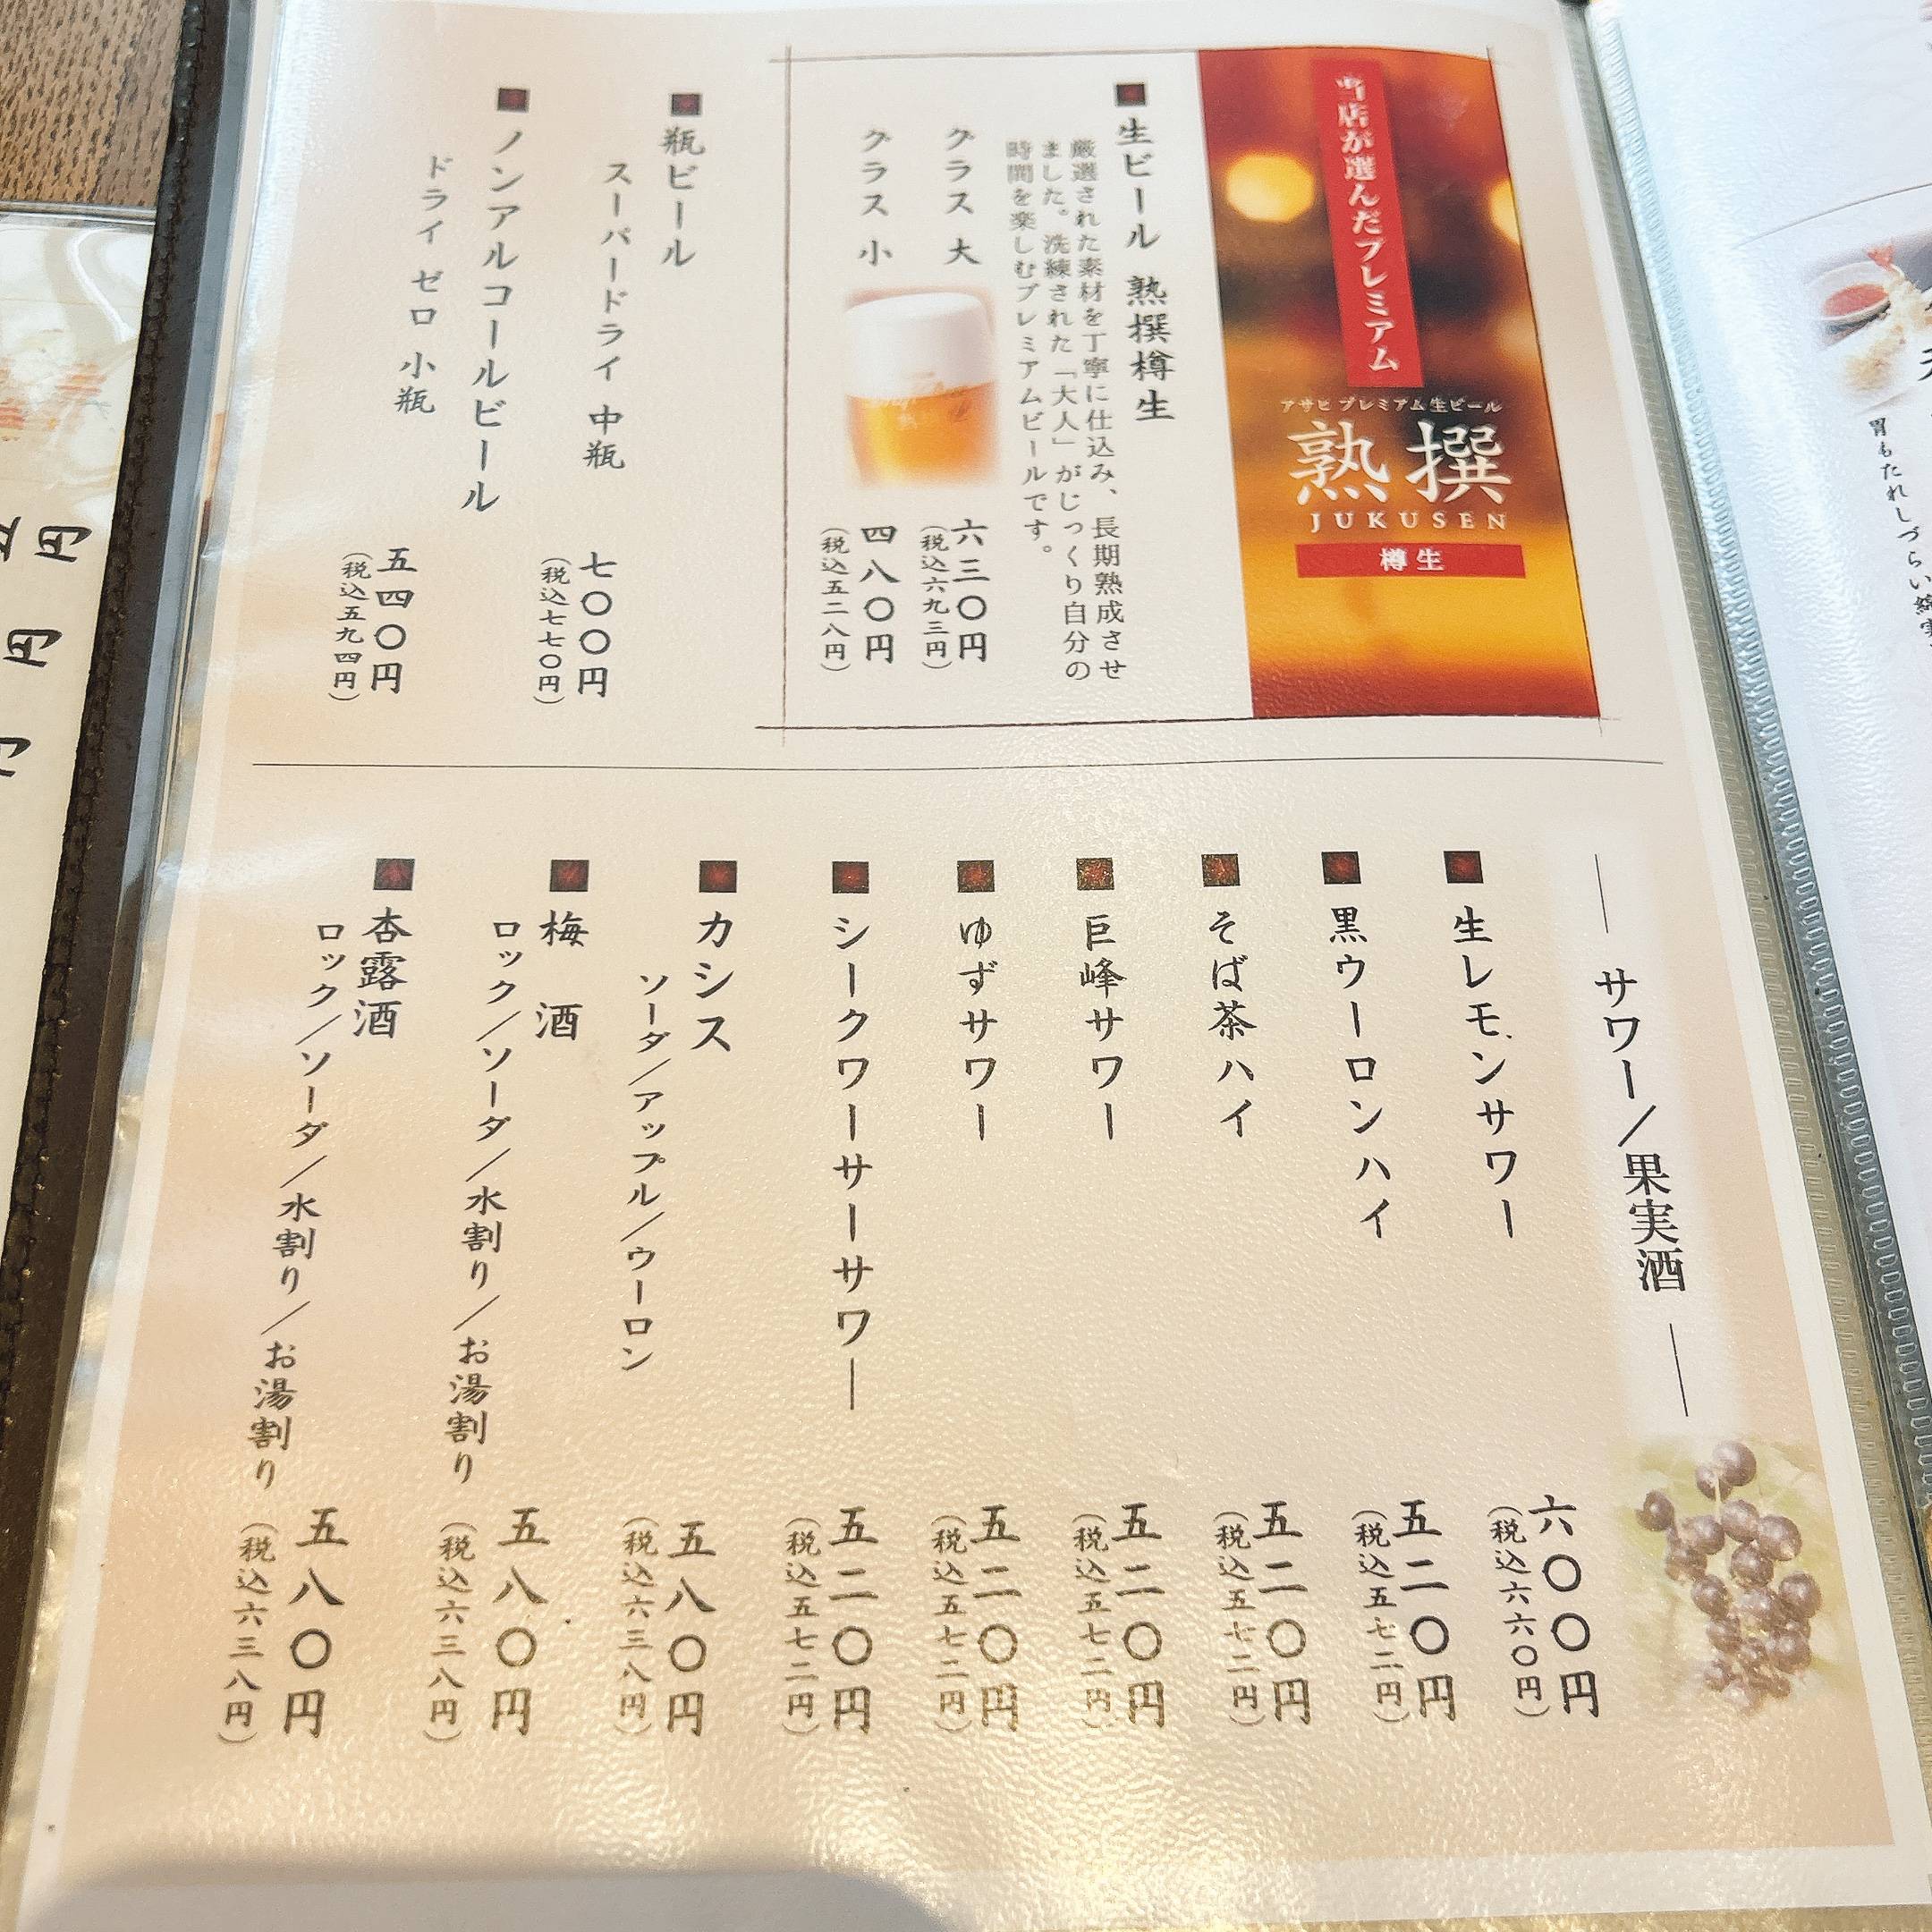 当店が選んだプレミアム
アサヒ プレミアム生ビール
熟撰
JUKUSEN
樽生
生ビール 熟撰樽生
厳選された素材を丁寧に仕込み、長期熟成させ
ました。洗練された「大人」がじっくり自分の
時間を楽しむプレミアムビールです。
グラス 大
六三〇円
(税込六九三円)
グラス 小
四八〇円
(税込五二八円)
瓶ビール
スーパードライ 中瓶
七〇〇円
(税込七七〇円)
ノンアルコールビール
ドライ ゼロ 小瓶
五四〇円
(税込五九四円)
サワー/果実酒
生レモンサワー
六〇〇円
(税込六六〇円)
黒ウーロンハイ
五二〇円
(税込五七二円)
そば茶ハイ
五二〇円
(税込五七二円)
巨峰サワー
五二〇円
(税込五七二円)
ゆずサワー
五二〇円
(税込五七二円)
シークワーサーサワー
五二〇円
(税込五七二円)
カシス
ソーダ/アップル/ウーロン
五八〇円
(税込六三八円)
梅酒
ロック/ソーダ/水割り/お湯割り
五八〇円
(税込六三八円)
杏露酒
ロック/ソーダ/水割り/お湯割り
五八〇円
(税込六三八円)
胃もたれしづらい
円
円